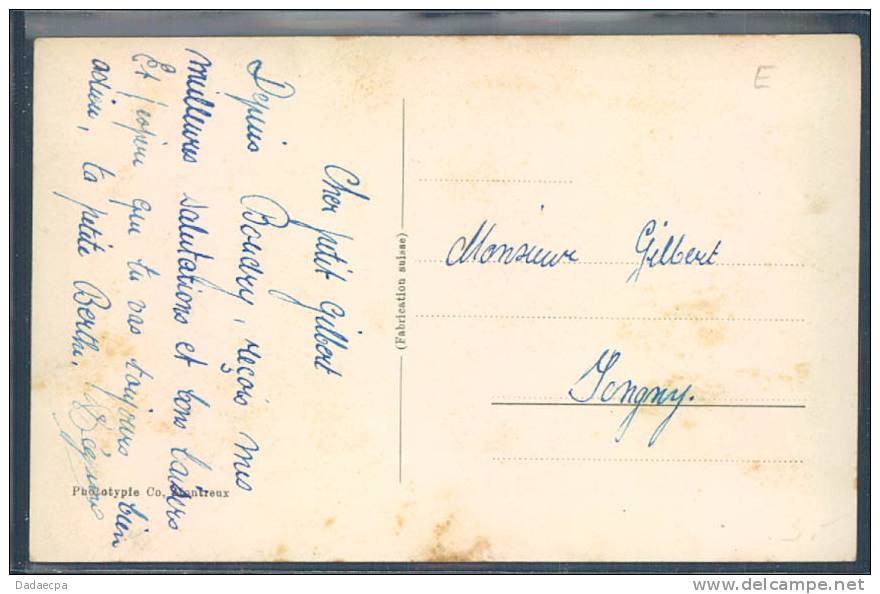 Cher petit Gilbert
Depuis Boudry, reçois mes
meilleures salutations et bons baisers
Et j'espère que tu vas toujours bien
adieu, ta petite Berthe.
(Fabrication suisse)
Phototypie Co, Montreux
E
Monsieur Gilbert
Jongny.
3.-
Dadaecpa
delcampe.net